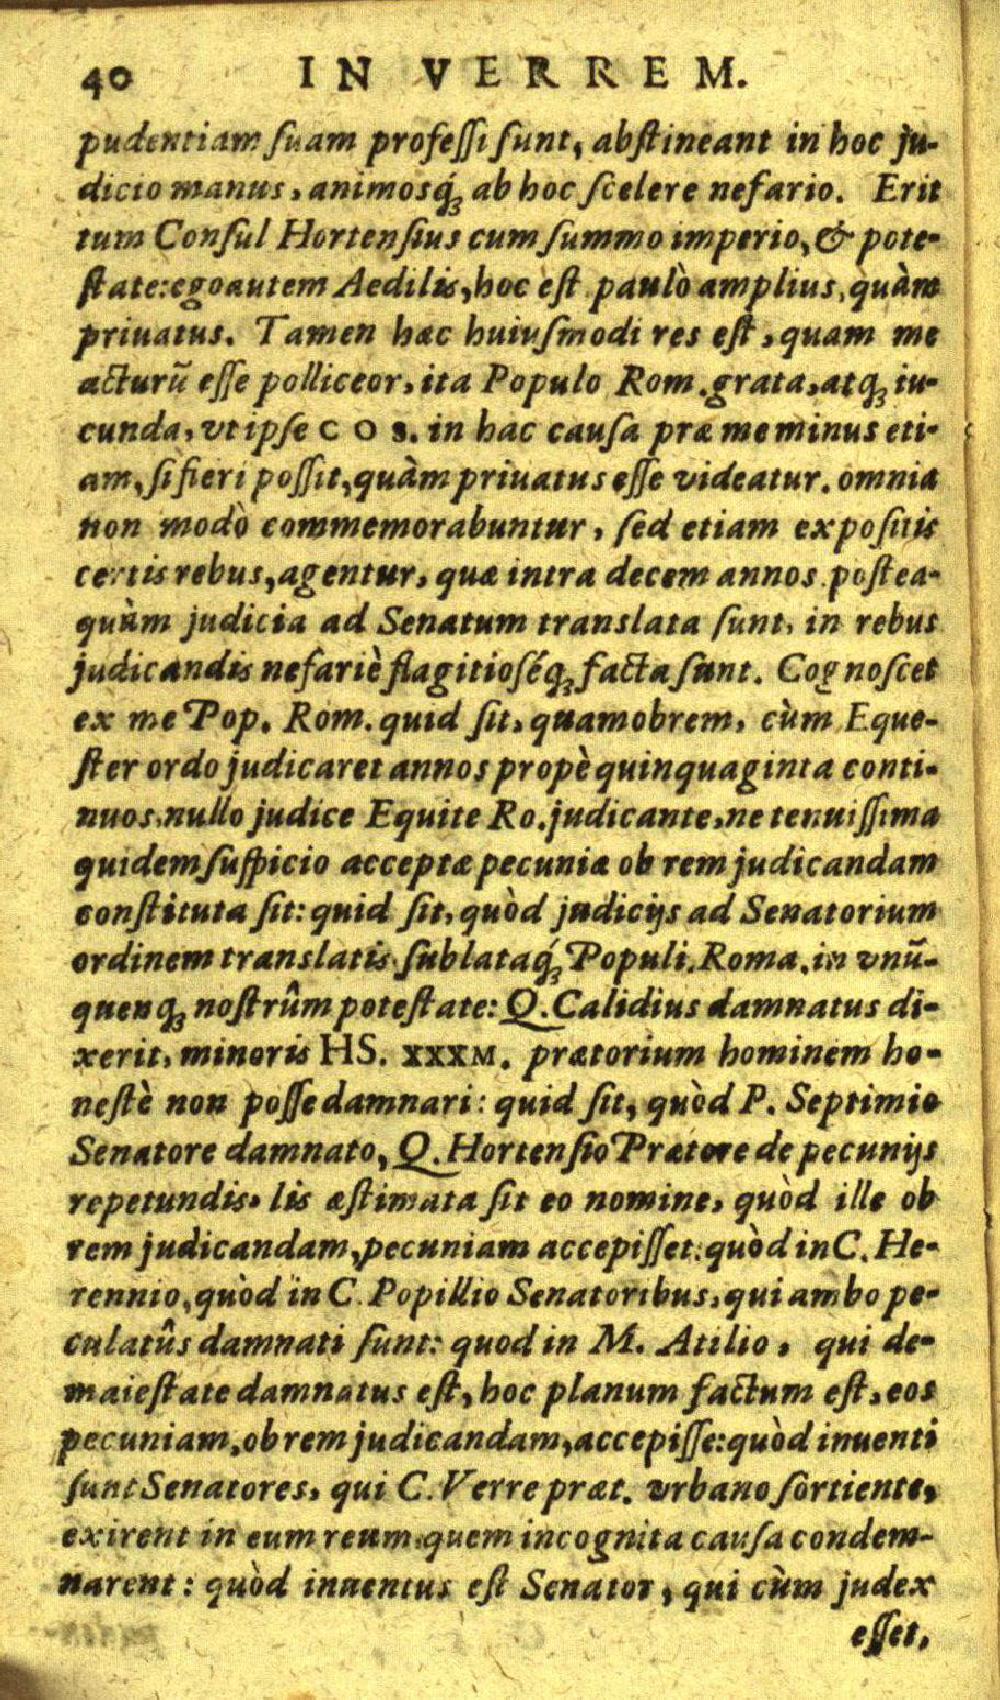 40 IN VERREM.
pudentiam ſuam profeſſi ſunt, abſtineant in hoc ju-
dicio manus, animosq́ꝫ ab hoc ſcelere nefario. Erit
tum Conſul Hortenſius cum ſummo imperio, & pote-
ſtate: ego autem Aedilis, hoc eſt paulò amplius, quàm
priuatus. Tamen hæc huiuſmodi res eſt, quam me
acturū eſſe polliceor, ita Populo Rom. grata, atqꝫ iu-
cunda, vt ipſe COS. in hac cauſa præ me minus eti-
am, ſi fieri poſſit, quàm priuatus eſſe videatur. omnia
non modò commemorabuntur, ſed etiam expoſitis
certis rebus, agentur, quæ intra decem annos poſtea-
quàm judicia ad Senatum translata ſunt, in rebus
judicandis nefariè flagitioſéqꝫ facta ſunt. Cognoſcet
ex me Pop. Rom. quid ſit, quamobrem, cùm Eque-
ſter ordo judicaret annos propè quinquaginta conti-
nuos, nullo judice Equite Ro. judicante, ne tenuiſſima
quidem ſuſpicio acceptæ pecuniæ ob rem judicandam
conſtituta ſit: quid ſit, quòd judicijs ad Senatorium
ordinem translatis ſublataq́ꝫ Populi Roma. in vnū-
quenqꝫ noſtrûm poteſtate: Q. Calidius damnatus di-
xerit, minoris HS. XXXM. prætorium hominem ho-
neſtè non poſſe damnari: quid ſit, quòd P. Septimio
Senatore damnato, Q. Hortenſio Prætore de pecunijs
repetundis, lis æſtimata ſit eo nomine, quòd ille ob
rem judicandam, pecuniam accepiſſet: quòd in C. He-
rennio, quòd in C. Popillio Senatoribus, qui ambo pe-
culatûs damnati ſunt: quod in M. Atilio, qui de-
maieſtate damnatus eſt, hoc planum factum eſt, eos
pecuniam, ob rem judicandam, accepiſſe: quòd inuenti
ſunt Senatores, qui C. Verre præt. vrbano ſortiente,
exirent in eum reum quem incognita cauſa condem-
narent: quòd inuentus eſt Senator, qui cùm judex
eſſet,